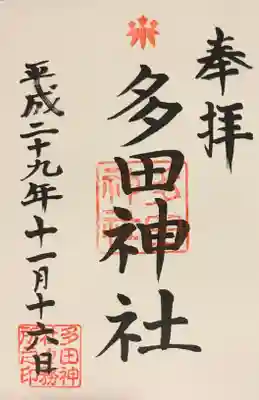 奉拝
多田神社
平成二十九年十一月十六日
多田神
社務
所之印